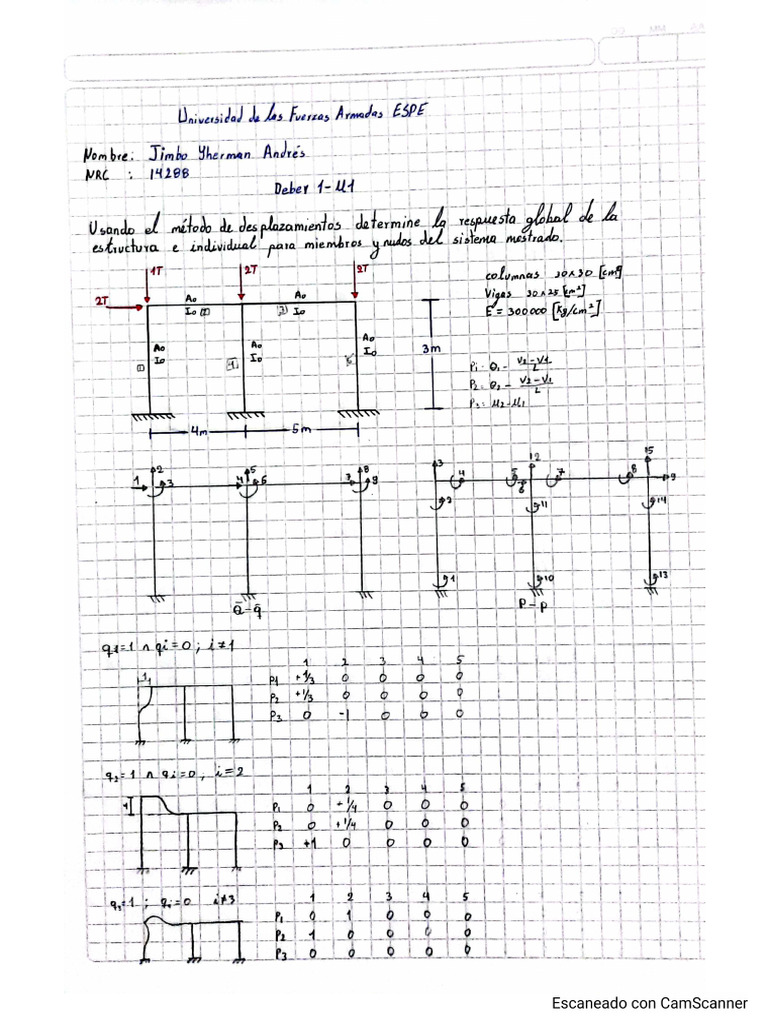 Universidad de las Fuerzas Armadas ESPE
Nombre: Jimbo Jherman Andrés
NRC : 14288
Deber 1-U1
Usando el método de desplazamientos determine la respuesta global de la
estructura e individual para miembros y nudos del sistema mostrado.
1T 2T 2T
2T
Ao Ao
Io Io
Ao Ao Ao
Io Io Io
3m
4m 5m
columnas 30x30 [cm²]
Vigas 30x25 [cm²]
E = 300000 [kg/cm²]
P1 = θ1 - V2-V1/L
P2 = θ2 - V2-V1/L
P3 = u2-u1
1 2 3 4 5 6 7 8 9
3 4 2 1 5 6 12 7 11 10 8 15 9 14 13
Q-q
P-p
q1=1 ∧ qi=0; i≠1
1
1 2 3 4 5
P1 +1/3 0 0 0 0
P2 +1/3 0 0 0 0
P3 0 -1 0 0 0
q2=1 ∧ qi=0, i=2
1
1 2 3 4 5
P1 0 +1/4 0 0 0
P2 0 +1/4 0 0 0
P3 +1 0 0 0 0
q3=1 ; qi=0 i≠3
1 2 3 4 5
P1 0 1 0 0 0
P2 1 0 0 0 0
P3 0 0 0 0 0
Escaneado con CamScanner